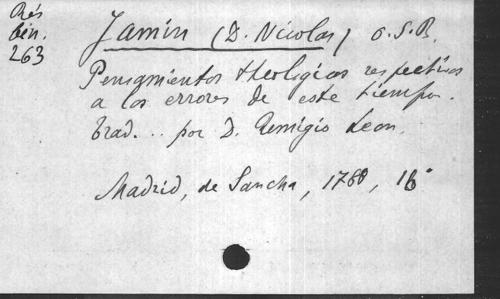 Rés
bén.
263
Jamin (D. Nicolas) O.S.B.
Pensamientos theologicos respectivos
a los errores de este tiempo.
Trad... por D. Remigio Leon.
Madrid, de Sancha, 1788, 16°